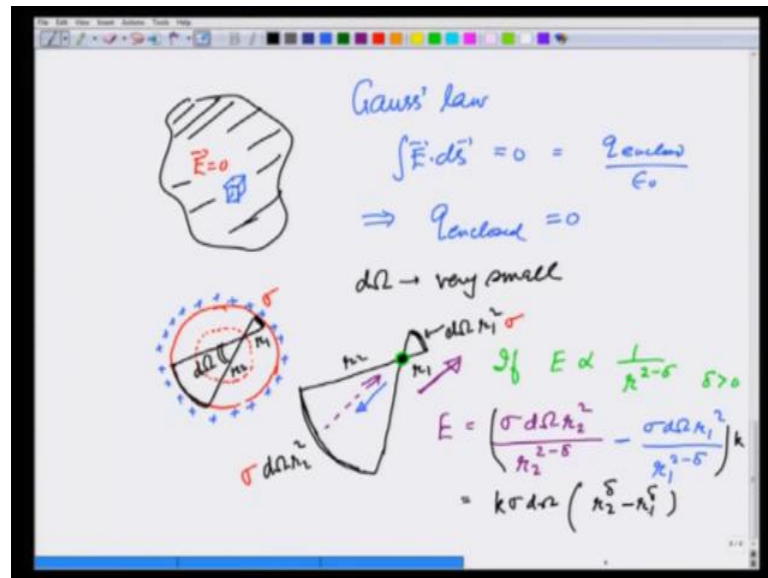 File Edit View Insert Actions Tools Help
Gauss' law
E⃗=0
∫E⃗·ds⃗ = 0 = q enclosed / ε₀
⇒ q enclosed = 0
dΩ → very small
σ
r₁
dΩ
r₂
r₂
dΩ r₁² σ
r₁
σ dΩ r₂²
If E ∝ 1 / r^(2-δ) δ>0
E = (σ dΩ r₂² / r₂^(2-δ) - σ dΩ r₁² / r₁^(2-δ)) k
= kσ dΩ (r₂^δ - r₁^δ)